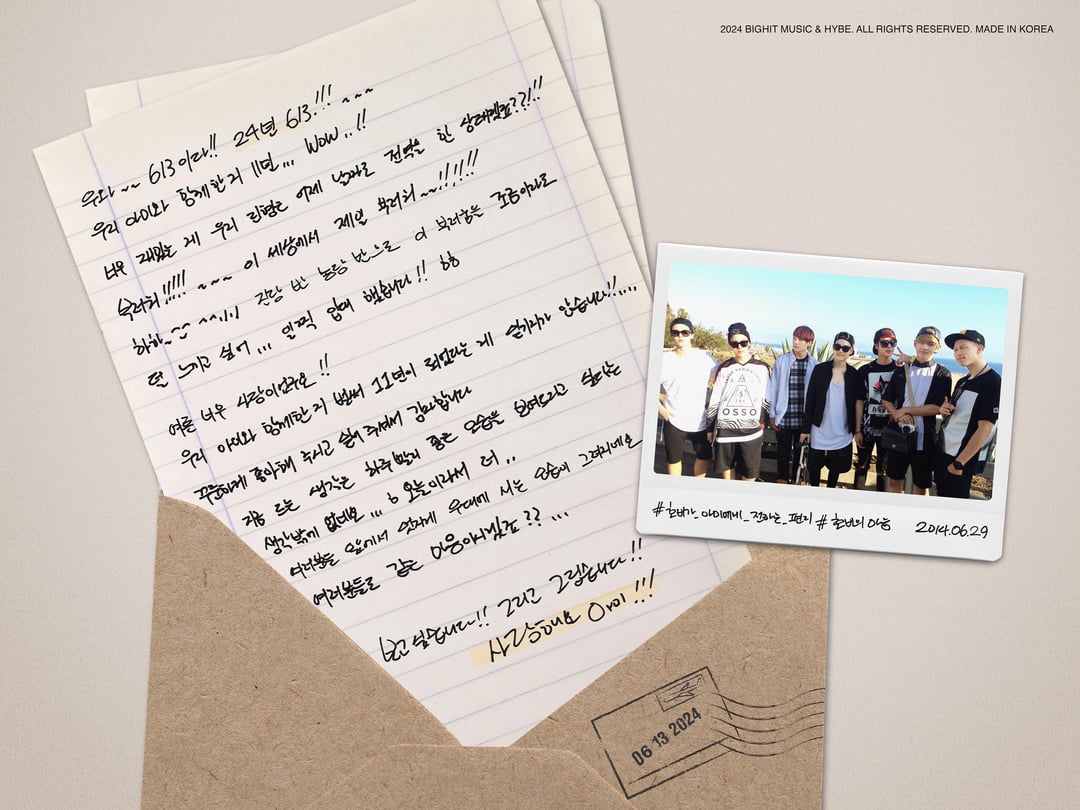 2024 BIGHIT MUSIC & HYBE. ALL RIGHTS RESERVED. MADE IN KOREA
우와~~ 613이다!! 24년 613!!! ~~~
우리 아미와 함께한지 11년... Wow..!!
너무 재밌는 게 우리 진형은 어제 날짜로 전역을 한 상태겠죠??!!!
부러워!!!!! ~~~ 이 세상에서 제일 부러워~~!!!!!
하하~^^ ^^;;; 진담 반 농담 반으로 이 부러움을 조금이라도
덜 느끼고 싶어... 일찍 입대 했습니다!! ㅎㅎ
여튼 너무
우리 아미와 함께한 지 벌써 11년이 되었다는 게 믿기지가 않습니다!!....
꾸준하게 좋아해 주시고 믿어 주셔서 감사합니다
지금 드는 생각은 하루빨리 좋은 모습을 보여드리고 싶다는
생각밖에 없네요... 오늘이라서 더..
여러분들 앞에서 멋지게 무대에 서는 모습이 그려지네요
여러분들도 같은 마음이시겠죠??...
보고 싶습니다!! 그리고 그립습니다!!
사랑해요 아미!!!
OSSO
#호비가_아미에게_전하는_편지 #호비의마음 2014.06.29
06 13 2024